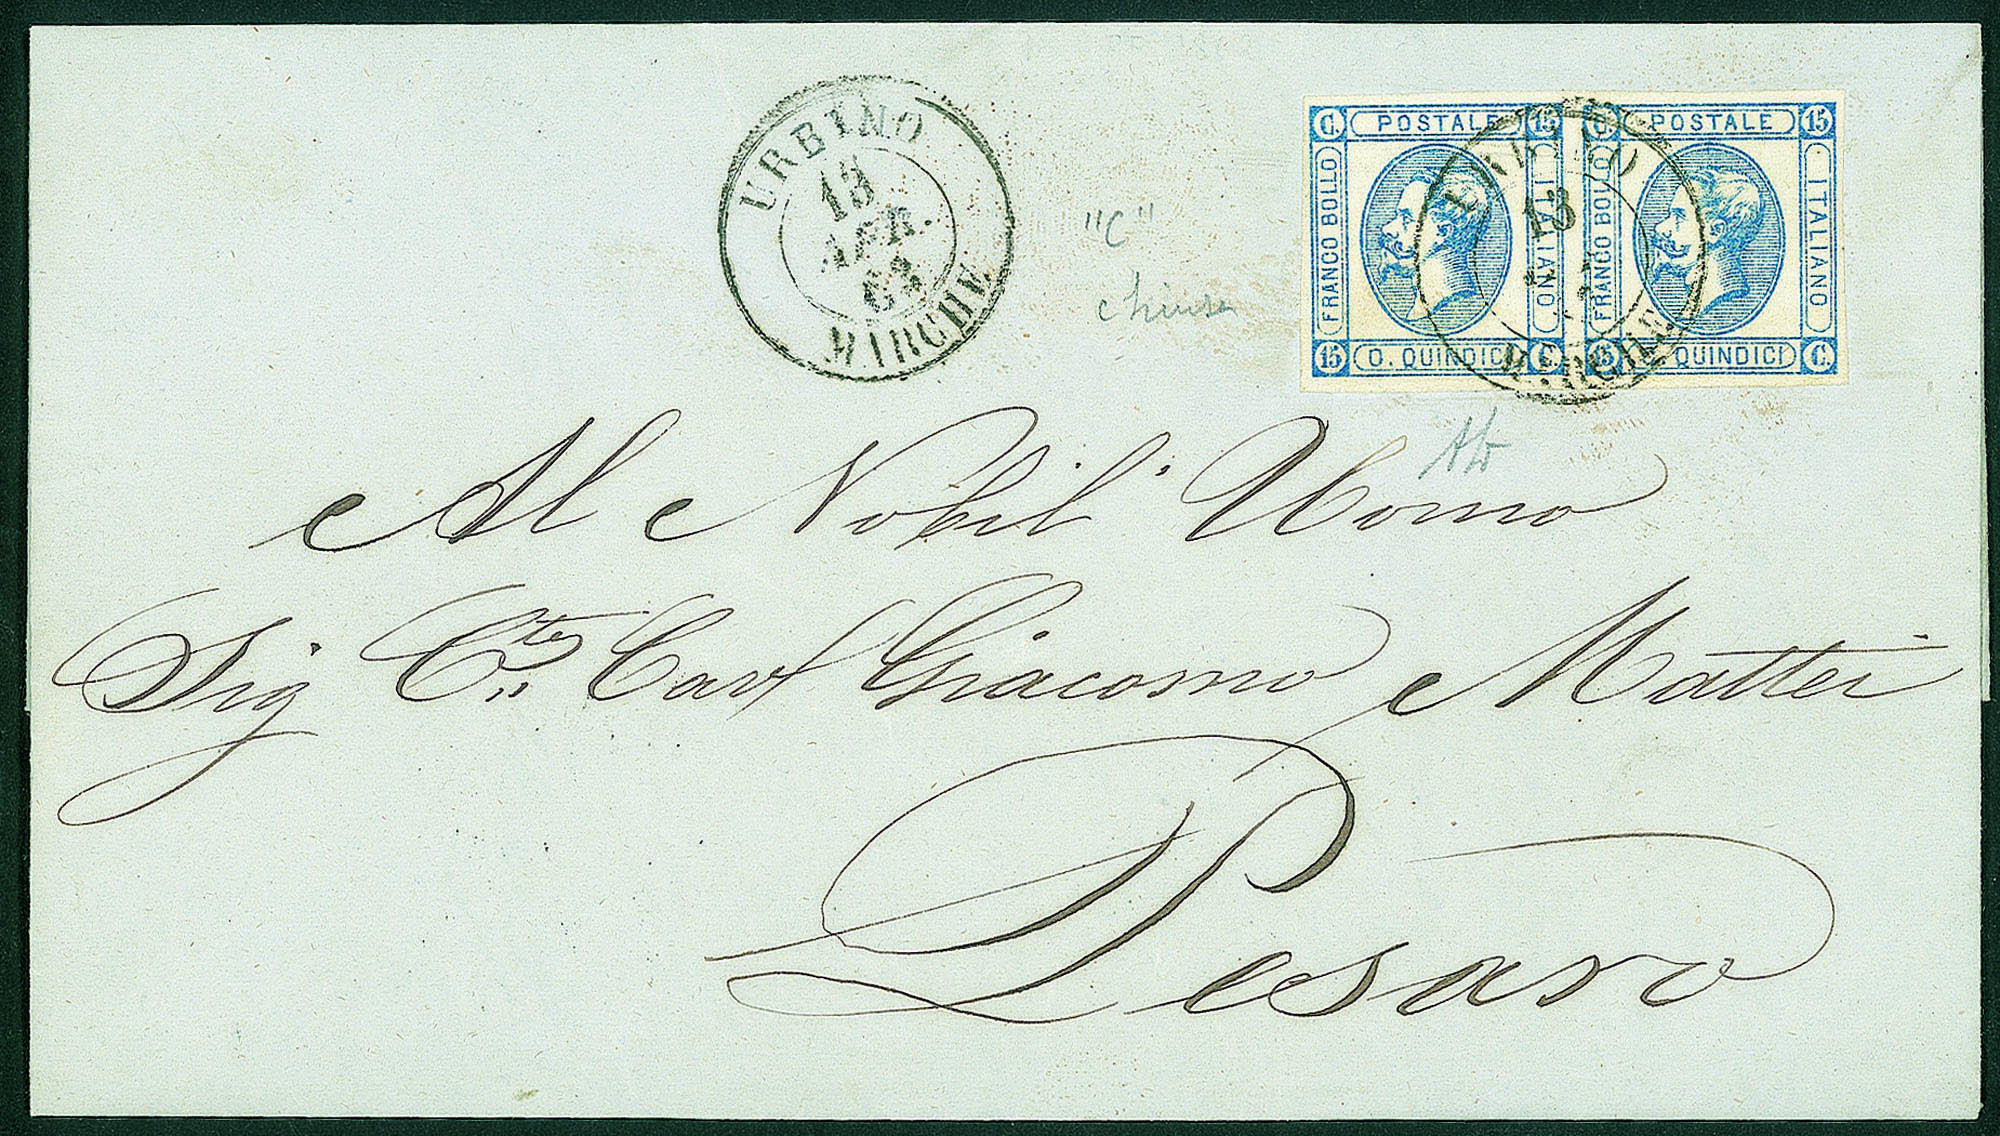 URBINO
13
APR.
63
MARCHE
"C"
chiusa
C. POSTALE 15
FRANCO BOLLO
ITALIANO
15 C. QUINDICI C.
C. POSTALE 15
FRANCO BOLLO
ITALIANO
15 C. QUINDICI C.
URBINO
13
MARCHE
Al Nobil' Uomo
Sig Cte Cav Giacomo Mattei
Pesaro